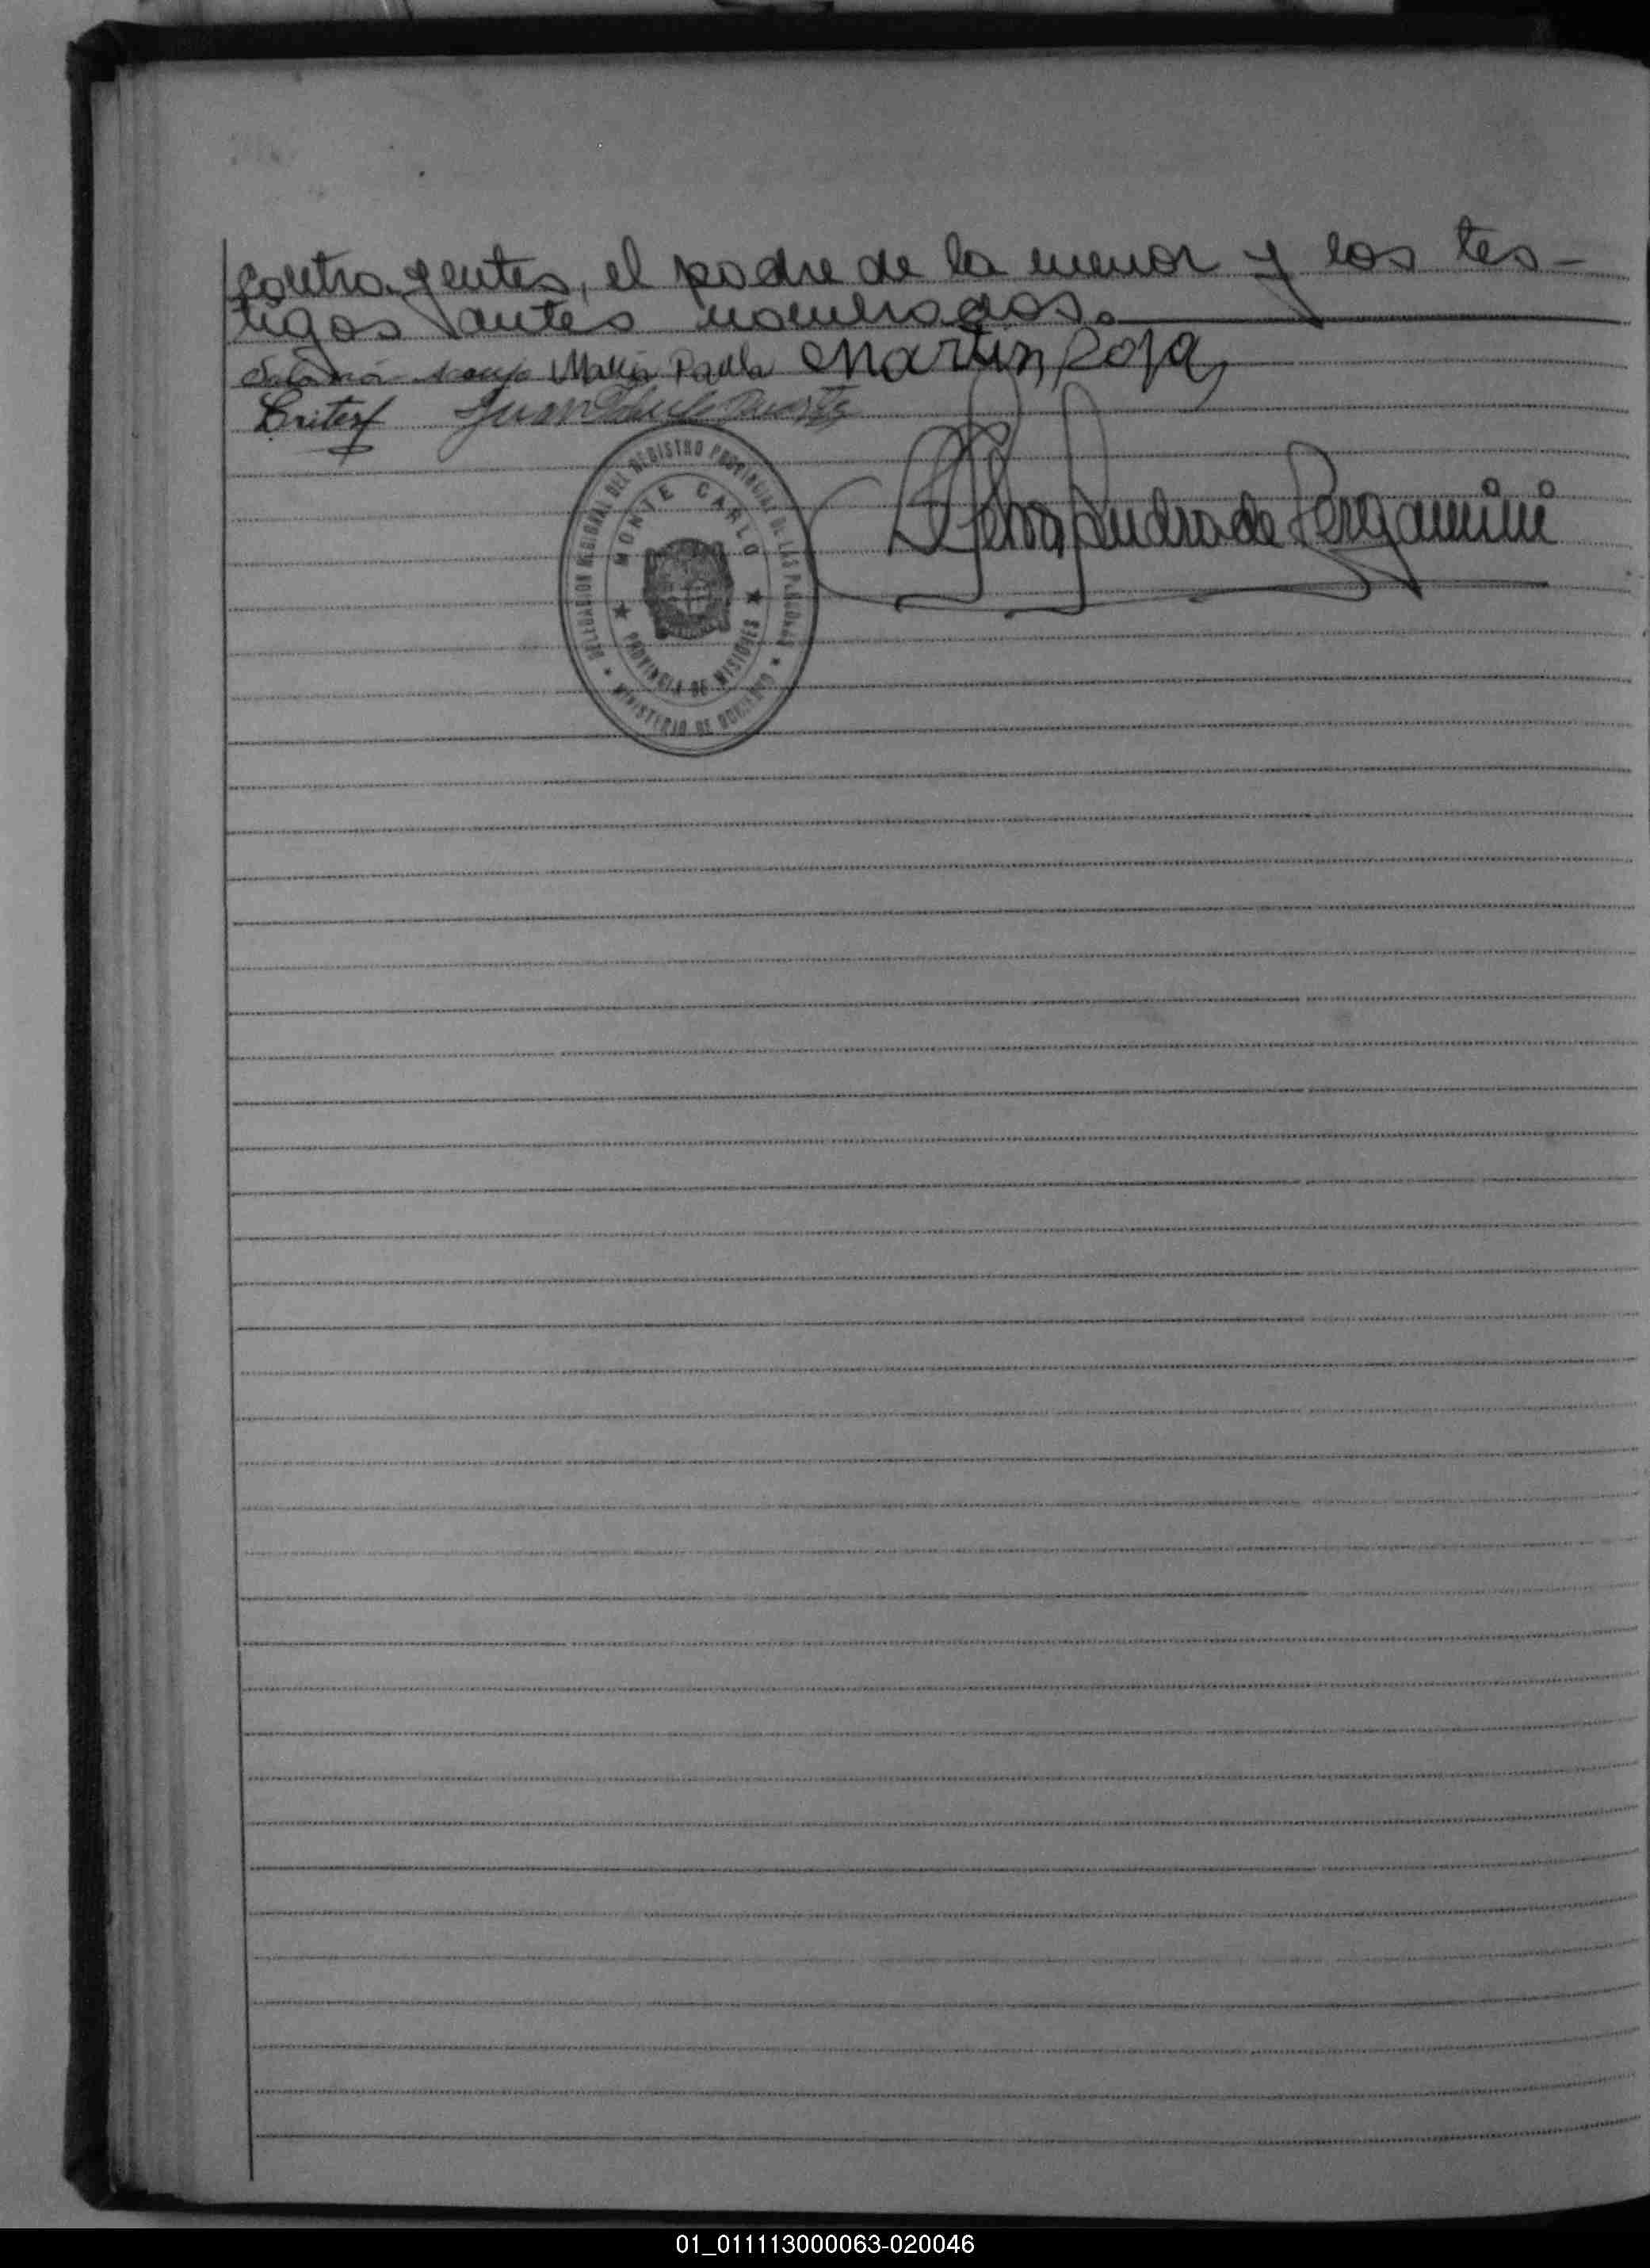 contrayentes, el padre de la menor y los tes-
tigos antes nombrados.
Maria Paula Martin Roja
Juan Duarte
Elva Andrade de Pergamini
DELEGACION REGIONAL DEL REGISTRO PROVINCIAL DE LAS PERSONAS
MONTE CARLO
PROVINCIA DE MISIONES
MINISTERIO DE GOBIERNO
01_011113000063-020046